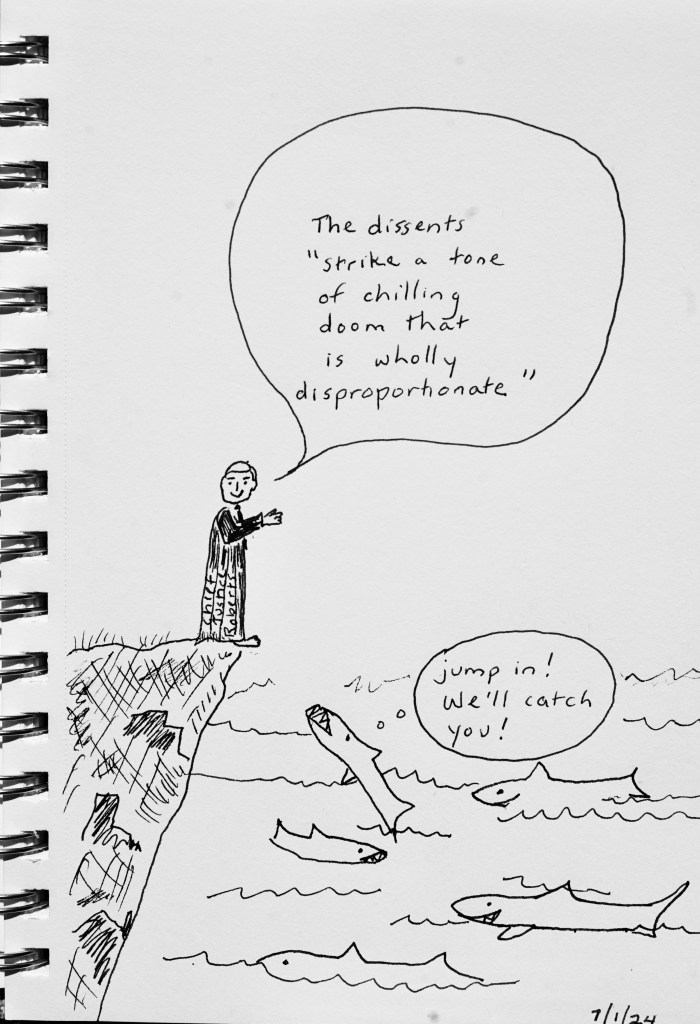 The dissents
"strike a tone
of chilling
doom that
is wholly
disproportionate"
Chief
Justice
Roberts
jump in!
We'll catch
you!
7/1/24